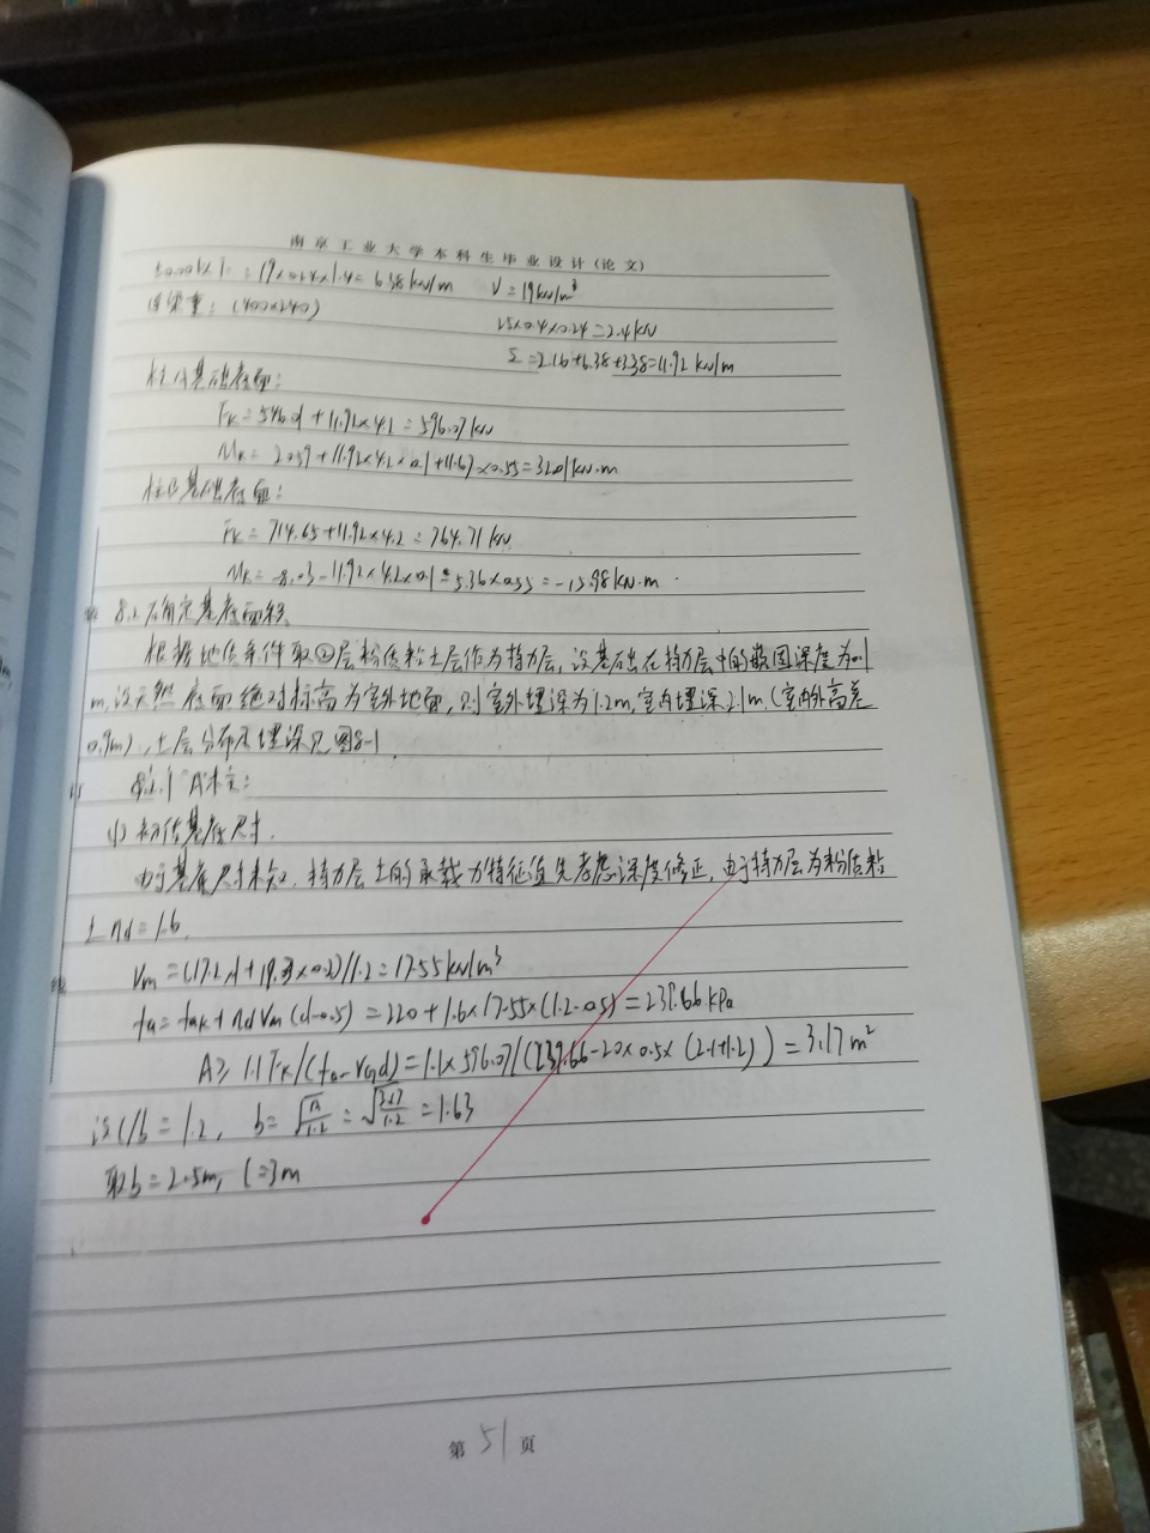 南京工业大学本科生毕业设计(论文)
=19×0.24×1.4=6.38kN/m γ=19kN/m³
梁重:(400×240)
25×0.4×0.24=2.4kN
Σ=2.16+6.38+3.38=11.92kN/m
柱A基础底面:
Fk=546.01+11.92×4.2=596.07kN
Mk=20.59+11.92×4.2×0.1+11.67×0.55=32.01kN·m
柱B基础底面:
Fk=714.65+11.92×4.2=764.71kN
Mk=-8.03-11.92×4.2×0.1-5.36×0.55=-15.98kN·m
8.2确定基底面积
根据地质条件取②层粉质粘土层作为持力层,设基础在持力层中的嵌固深度为0.1
m,设天然底面绝对标高为室外地面,则室外埋深为1.2m,室内埋深2.1m.(室内外高差
0.9m),土层分布及埋深见图8-1
8.2.1 A柱:
(1)初估基底尺寸.
由于基底尺寸未知,持力层土的承载力特征值先考虑深度修正,由于持力层为粉质粘
土ηd=1.6.
γm=(17.2×1+19.3×0.2)/1.2=17.55kN/m³
fa=fak+ηdγm(d-0.5)=220+1.6×17.55×(1.2-0.5)=239.66kPa
A≥1.1Fk/(fa-γGd)=1.1×596.07/(239.66-20×0.5×(2.1+1.2))=3.17m²
设l/b=1.2, b=√(A/1.2)=√(3.17/1.2)=1.63
取b=2.5m, l=3m
第51页